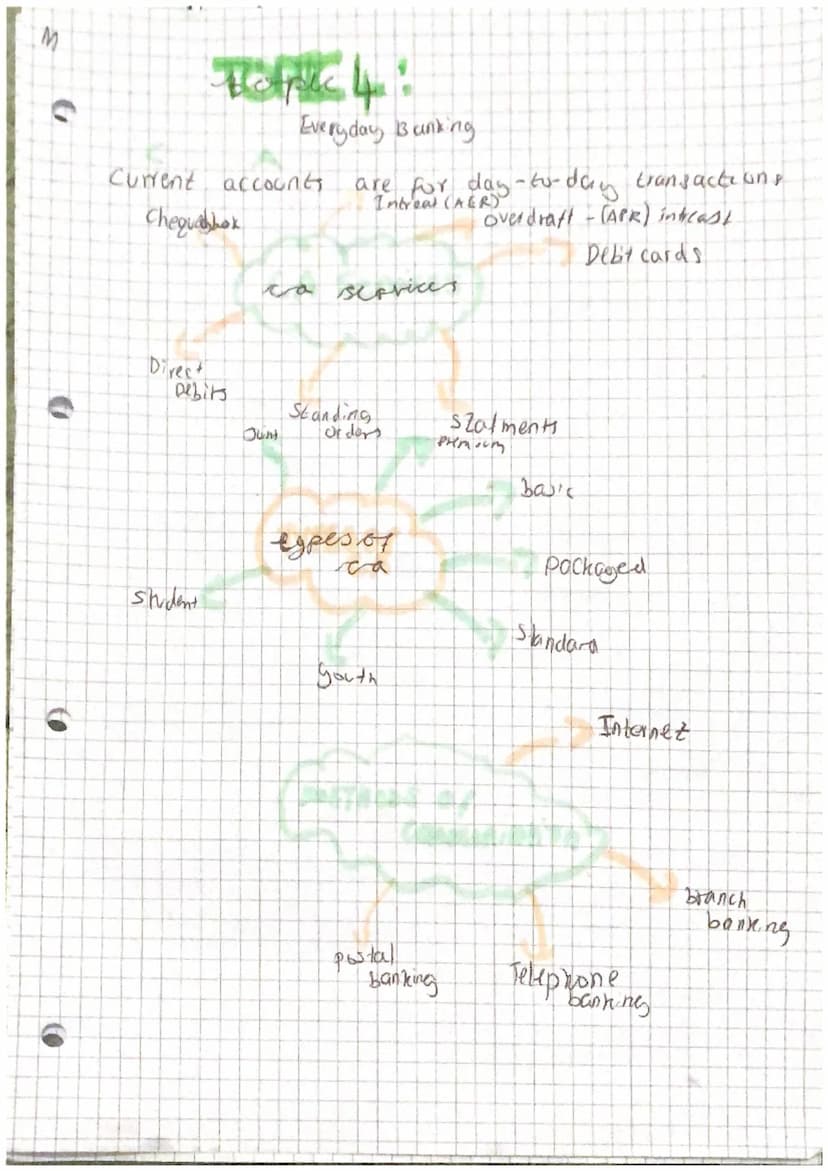 M
Topic 4:
Everyday Banking
Current accounts are for day-to-day transactions
Intreat (AER)
Chequebook
Overdraft - (APR) intreast
Debit cards
ca services
Direct
Debits
Standing
orders
Statments
Joint
Premium
basic
types of
ca
Packaged
Student
Standard
Youth
Internet
methods of
branch
banking
postal
banking
Telephone
banking